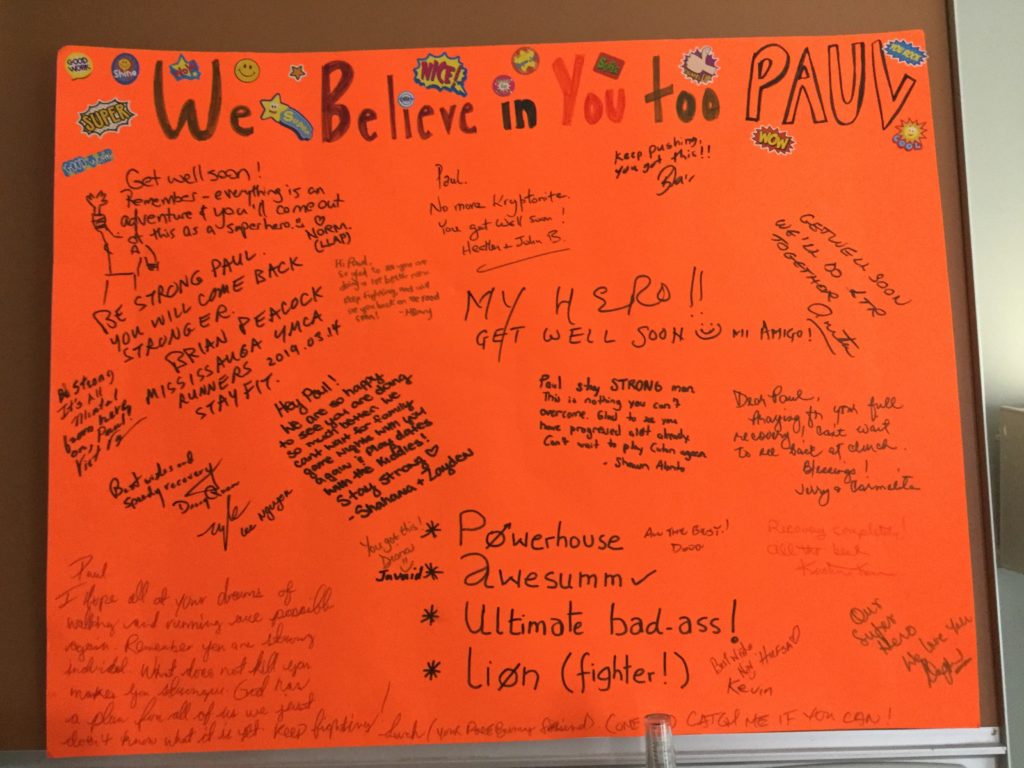 We Believe in You too PAUL
GOOD WORK
Shine
NICE!
SUPER
Super
WOW
COOL
Get well soon!
Remember - everything is an
adventure & you'll come out
of this as a superhero.
NORM
(LLAP)
Paul.
No more Kryptonite.
You get well soon!
Heather + John B.
Keep pushing,
you got this!!
Blair
GET WELL SOON
WE'LL DO LTR
TOGETHER
BE STRONG PAUL.
YOU WILL COME BACK
STRONGER.
BRIAN PEACOCK
MISSISSAUGA YMCA
RUNNERS 2019.03.14
STAY FIT.
Hi Paul,
So glad to see you are
doing a lot better now
keep fighting, and we'll
see you back on the road
soon!
MY HERO!!
GET WELL SOON MI AMIGO!
Be Strong
It's All
Mental
on, Paul.
Hey Paul!
We are so happy
to see you are doing
so much better. We
cant wait for family
game nights with you
again & play dates
with the kiddies!
Stay strong
- Shahana + Zayden
Paul stay STRONG man
This is nothing you can't
overcome. Glad to see you
have progressed alot already.
Can't wait to play Catan again
- Shawn
Dear Paul,
Praying for your full
recovery! Can't wait
to see back at church.
Blessings!
Jerry & Carmelita
Best wishes and
speedy recovery
Nguyen
You got this!
Diana
Javaid
* Pøwerhouse
* Awesumm
* Ultimate bad-ass!
* Liøn (fighter!)
ALL THE BEST!
Recovery completely!
All the best
Paul
I hope all of your dreams of
walking and running are possible
again. Remember you are strong
individual. What does not kill you
makes you stronger. God has
a plan for all of us we just
don't know what it is yet. Keep fighting!
Luck (your Pace Bunny (COME AND CATCH ME IF YOU CAN!
Best wishes
by Hafsa
Kevin
Our
Super
Hero
We love you